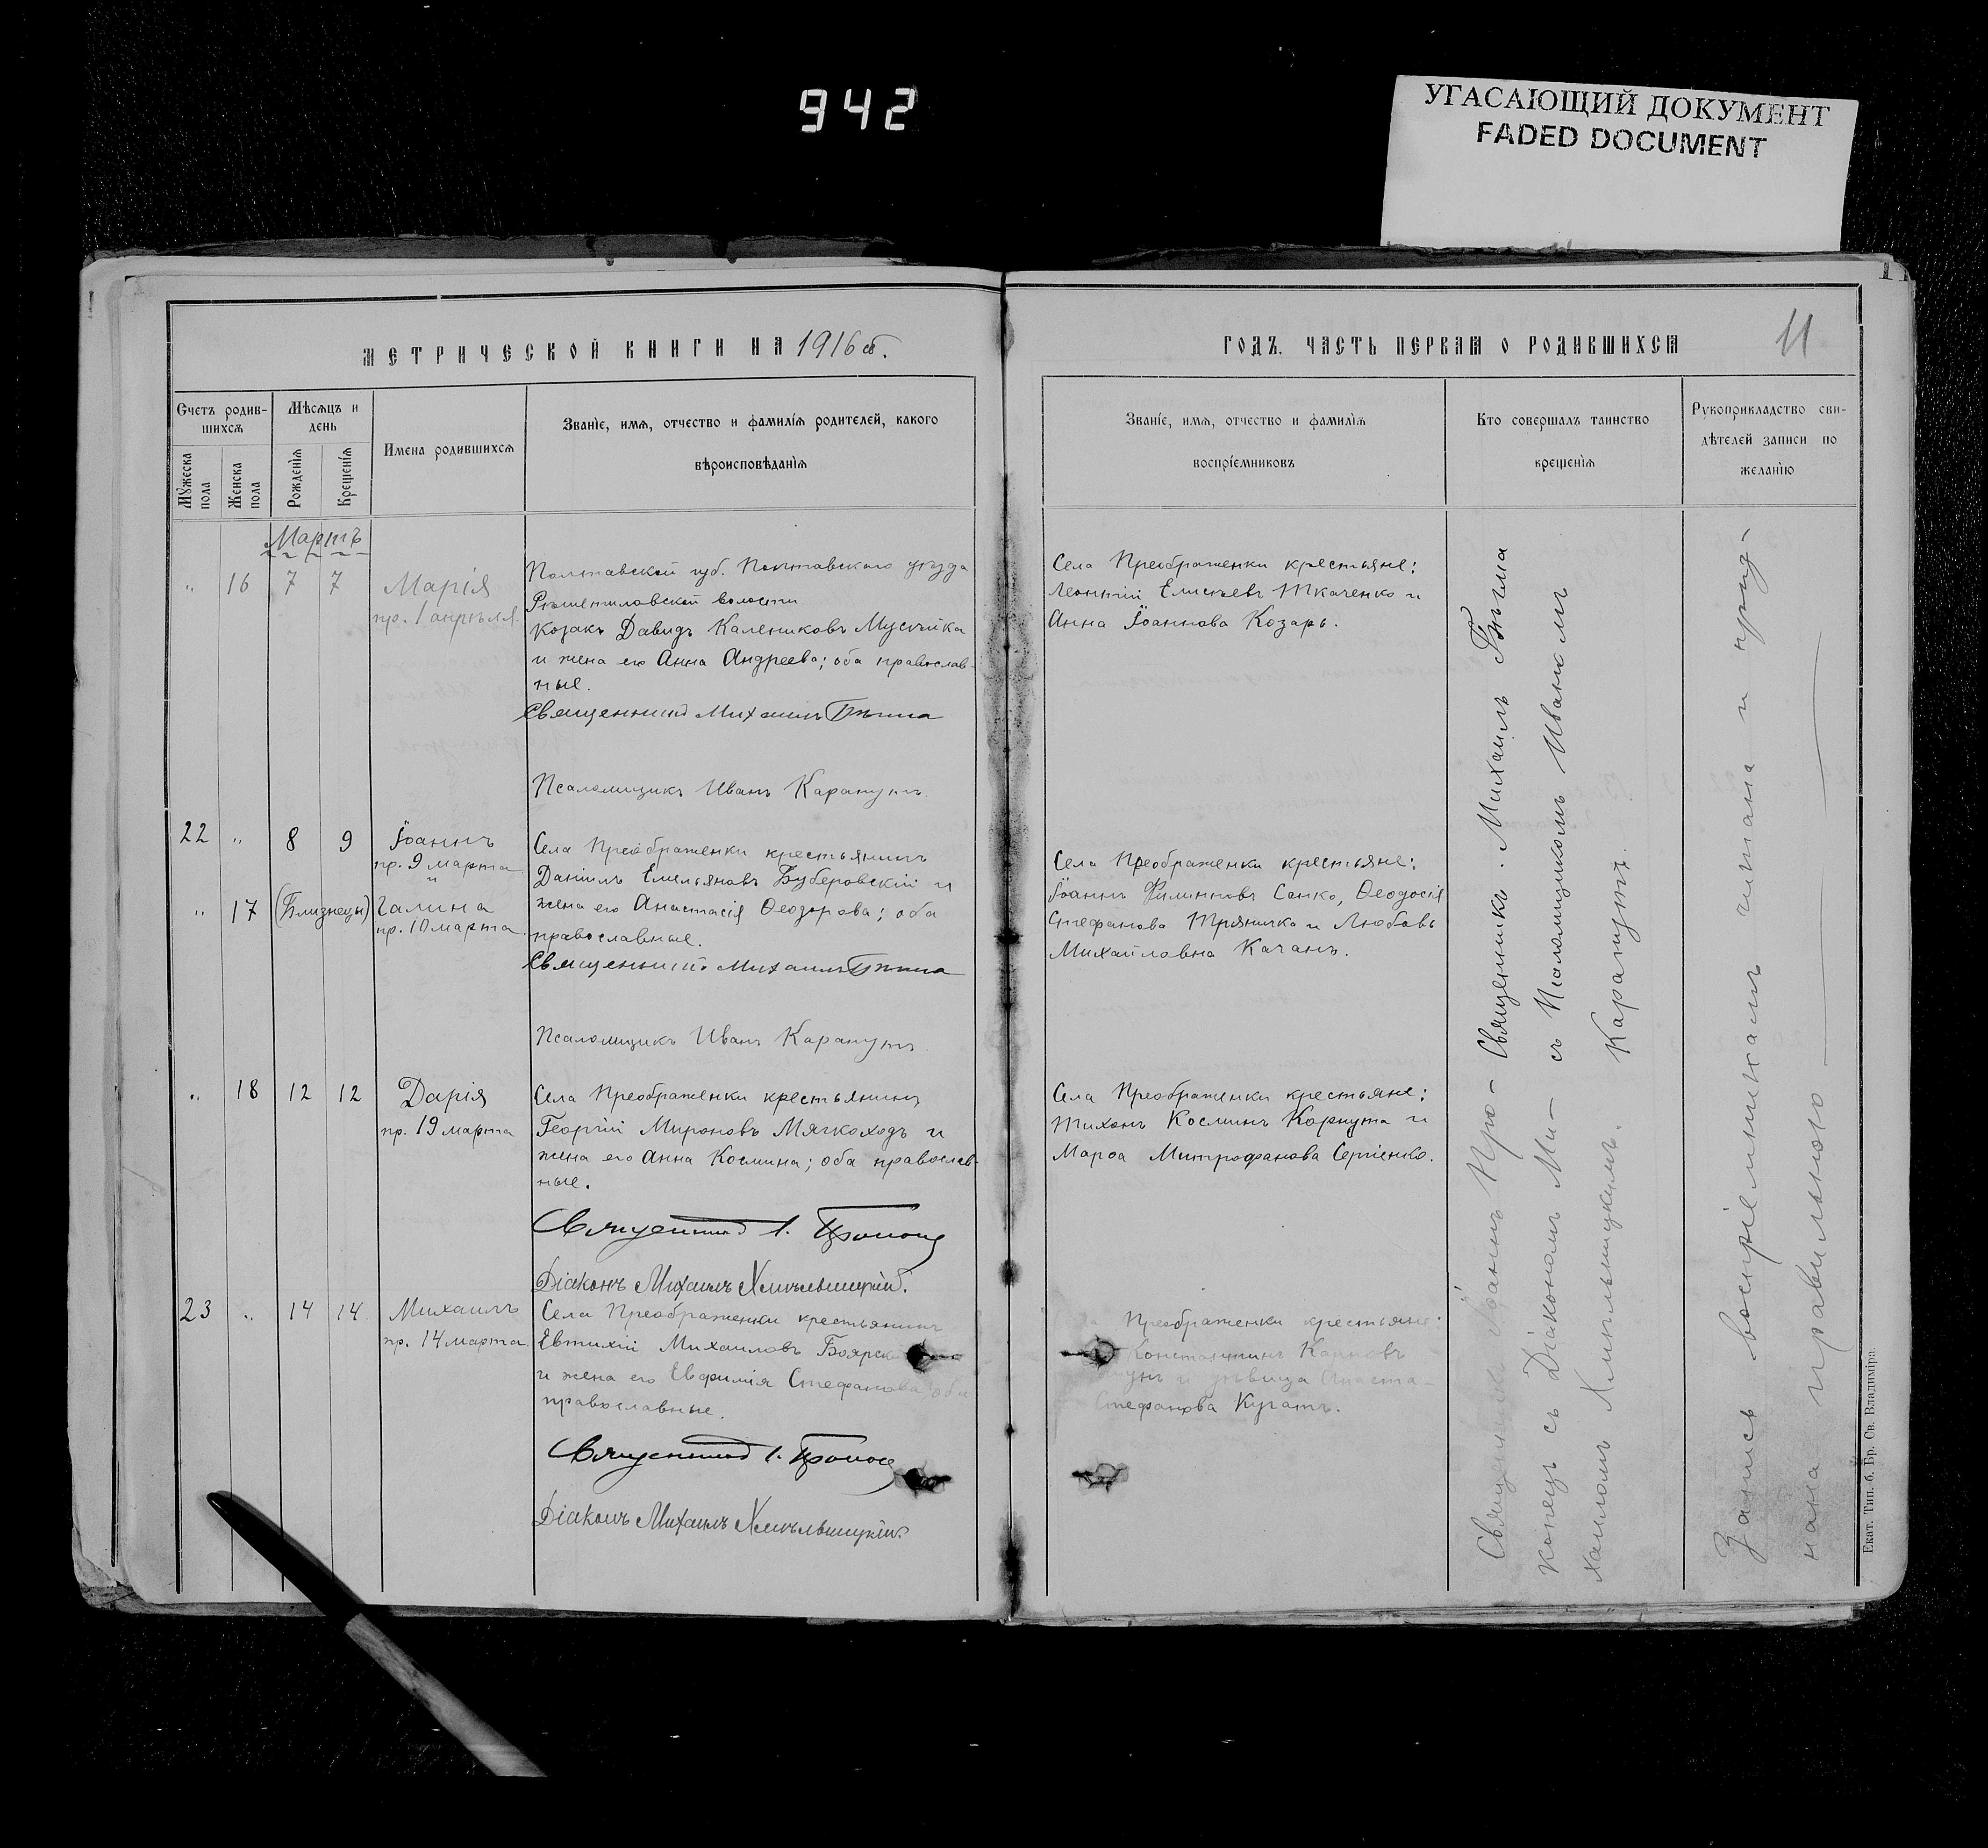 942
УГАСАЮЩИЙ ДОКУМЕНТ
FADED DOCUMENT
МЕТРИЧЕСКОЙ КНИГИ НА 1916й.
Счетъ родив-
шихся
Мѣсяцъ и
день
Имена родившихся
Званіе, имя, отчество и фамилія родителей, какого
вѣроисповѣданія
Мужеска
пола
Женска
пола
Рожденія
Крещенія
Мартъ
„ 16 7 7 Марія
пр. 1 апрѣля.
Полтавской губ. Полтавскаго уѣзда
Рѣшетиловской волости
козакъ Давидъ Калениковъ
и жена его Анна Андреева; оба православ-
ные.
Священникъ Михаилъ
Псаломщикъ Иванъ Карапутъ.
22 „ 8 9 Іоаннъ
пр. 9 марта
и
„ 17 (Близнецы) Галина
пр. 10 марта.
Села Преображенки крестьянинъ
Даніилъ Емельяновъ Буберовскій и
жена его Анастасія Ѳеодорова; оба
православные.
Священникъ Михаилъ
Псаломщикъ Иванъ Карапутъ.
„ 18 12 12 Дарія
пр. 19 марта
Села Преображенки крестьянинъ
Георгій Мироновъ Мягкоходъ и
жена его Анна Космина; оба православ-
ные.
Священникъ І. Прокопецъ
Діаконъ Михаилъ Хмѣльницкій.
23 „ 14 14 Михаилъ
пр. 14 марта
Села Преображенки крестьянинъ
Евтихій Михаиловъ
и жена его Евфимія Стефанова; оба
православные.
Священникъ І. Прокопецъ
Діаконъ Михаилъ Хмѣльницкій.
ГОДЪ. ЧАСТЬ ПЕРВАЯ О РОДИВШИХСЯ
11
Званіе, имя, отчество и фамилія
воспріемниковъ
Кто совершалъ таинство
крещенія
Рукоприкладство сви-
дѣтелей записи по
желанію
Села Преображенки крестьяне:
Леонтій Елисѣевъ Ткаченко и
Анна Іоаннова Козарь.
Села Преображенки крестьяне:
Іоаннъ Филипповъ Санко, Ѳеодосія
Стефанова Тряничко и Любовь
Михайловна Качанъ.
Села Преображенки крестьяне:
Тихонъ Косминъ Корнута и
Марѳа Митрофанова Сергіенко.
Преображенки крестьяне:
Константинъ Карповъ
и дѣвица Анаста-
Стефанова
Священникъ Іоаннъ Про-
копецъ съ Діакономъ Ми-
хаиломъ Хмѣльницкимъ.
Священникъ Михаилъ
съ Псаломщикомъ Иваномъ
Карапутъ.
Запись воспріемникамъ читана и приз-
нана правильною
Екат. Тип. б. Бр. Св. Владиміра.